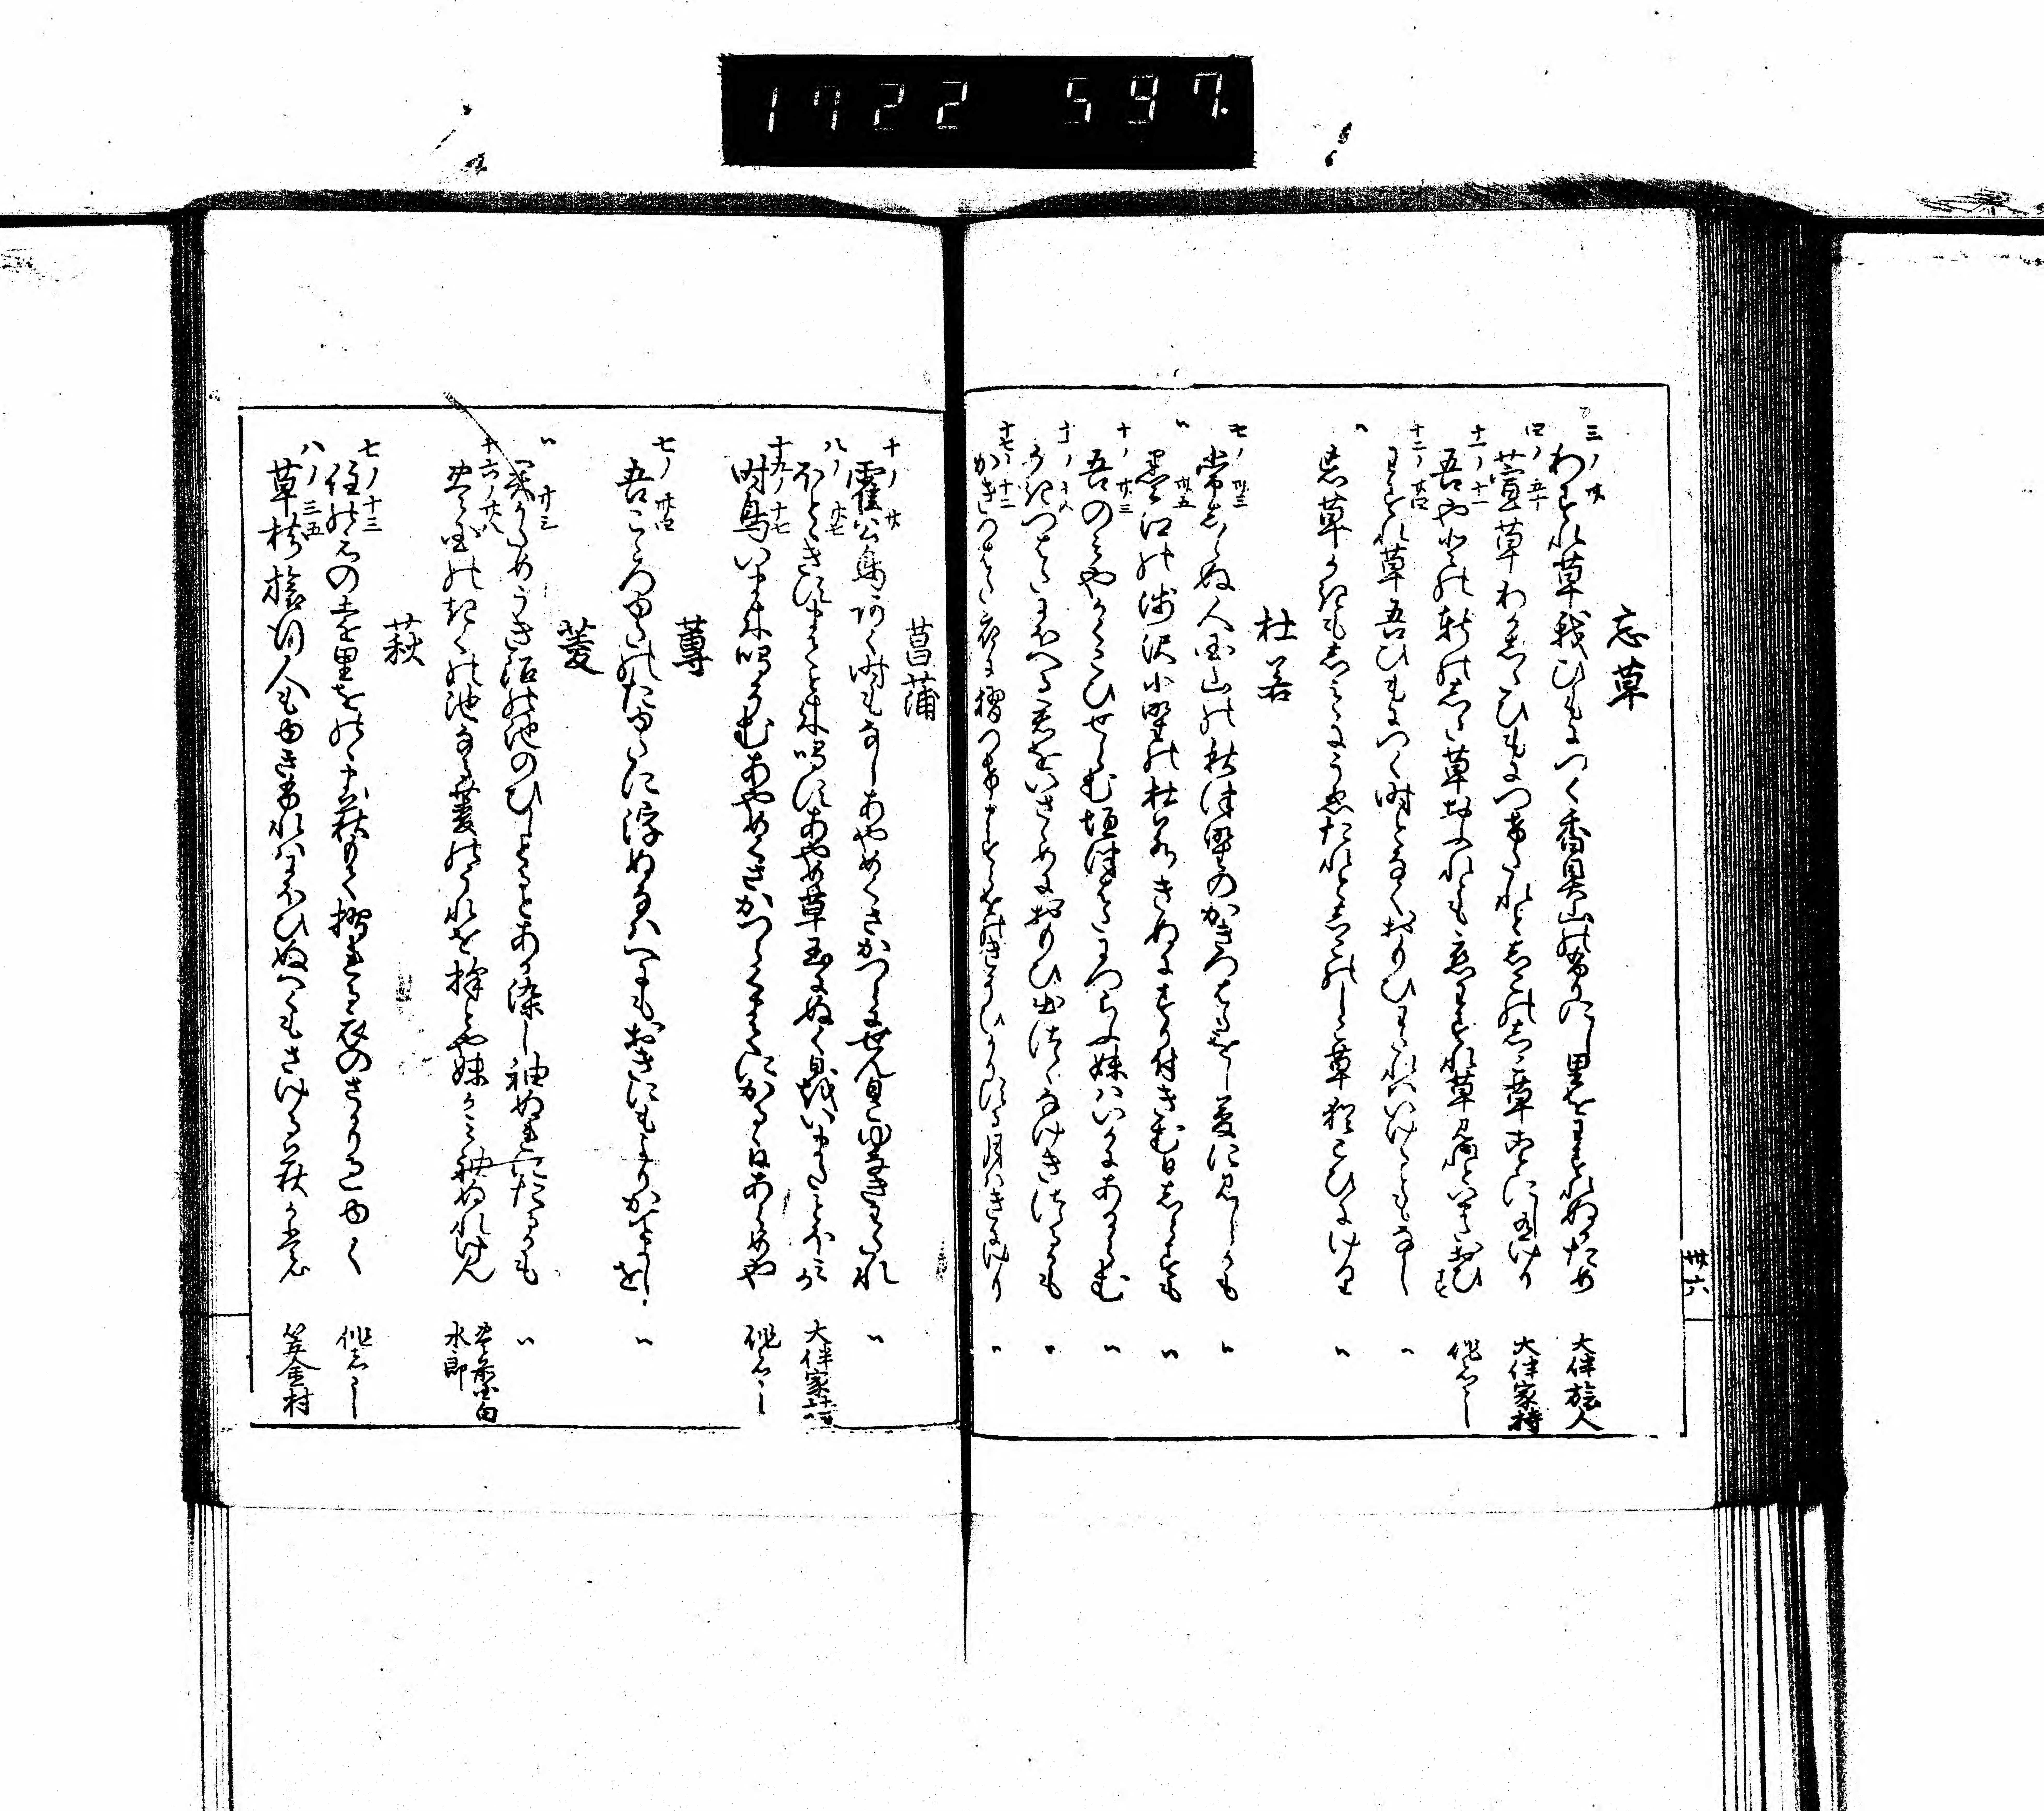 1722 597.
忘草
三ノ廿
わすれ草我ひもにつく香具山の古にし里をわすれぬかため
大伴旅人
四ノ五十
萱草わか下ひもにつけたれと しこのしこ草ことにし有けり
大伴家持
十一ノ十一
吾やとの軒のした草おふれとも恋わすれ草見れといまたおひす
作者不
十二ノ廿四
わすれ草吾ひもにつく時となくおもひわたれはいけりともなし
〃
〃
忘草かきもしみみにうゑたれとしこのしこ草猶こひにけり
〃
杜若
七ノ卅三
常しらぬ人国山の秋津野のかきつはたをし夢に見しかも
〃
〃 卅五
墨江の浅沢小野の杜若きぬにすり付きむ日しらすも
〃
十ノ廿三
吾のみやかくこひせむ垣津はたにつらふ妹はいかにあるらむ
〃
かきつはたにほへる君をいささめにおもひ出つつなけきつるかも
〃
十七ノ十二
かきつはた衣に摺つけますらをのきそひかりする月はきにけり
〃
菖蒲
十ノ廿
霍公鳥いとふ時もなしあやめくさかつらにせん日こゆなきわたれ
〃
八ノ廿七
ほとときすまてと来鳴すあやめ草玉にぬく日をいまたとほみか
大伴家持
十九ノ十七
時鳥いま来鳴そむあやめくさかつらくまてにかるる日あらめや
作者不
蓴
七ノ廿四
吾こころゆたにたゆたに浮ぬなはへにもおきにもよりかてましを
〃
菱
〃 廿三
君かため うき沼の池のひしとるとわか染し袖ぬれにたるかも
〃
十六ノ廿八
豊国のきくの池なる菱のうれを採とや妹かみ袖ぬれけん
豊前国白水郎
萩
七ノ十三
住吉の遠里をののま萩もて摺れる衣のさかり過ゆく
作者不
八ノ三五
草枕旅行人もゆきふれはにほひぬへくもさける萩かも
笠金村
卅六